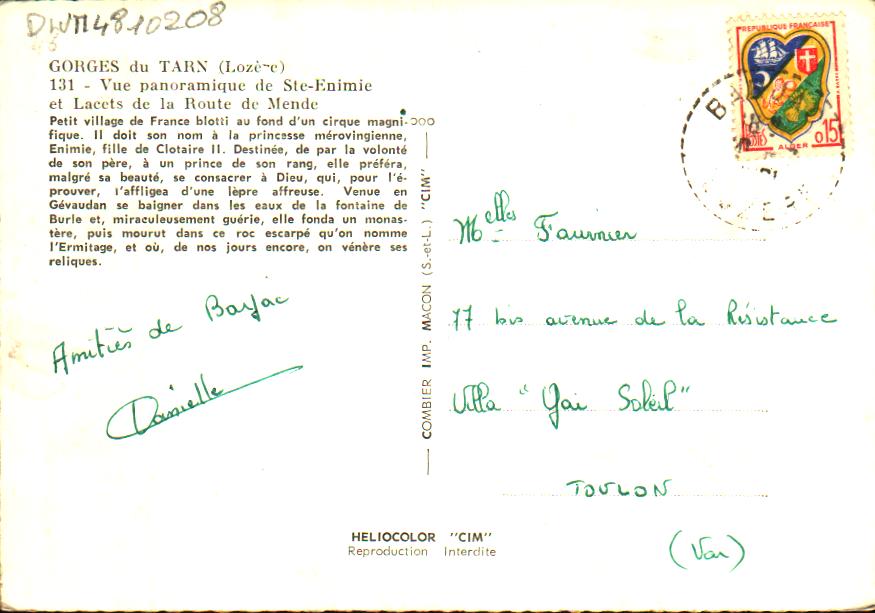 DWM4810208
GORGES du TARN (Lozère)
131 - Vue panoramique de Ste-Enimie
et Lacets de la Route de Mende
Petit village de France blotti au fond d'un cirque magni-
fique. Il doit son nom à la princesse mérovingienne,
Enimie, fille de Clotaire II. Destinée, de par la volonté
de son père, à un prince de son rang, elle préféra,
malgré sa beauté, se consacrer à Dieu, qui, pour l'é-
prouver, l'affligea d'une lèpre affreuse. Venue en
Gévaudan se baigner dans les eaux de la fontaine de
Burle et, miraculeusement guérie, elle fonda un monas-
tère, puis mourut dans ce roc escarpé qu'on nomme
l'Ermitage, et où, de nos jours encore, on vénère ses
reliques.
Amitiés de Barjac
Danielle
COMBIER IMP. MACON (S.-et-L.) "CIM"
REPUBLIQUE FRANÇAISE
POSTES
0,15
ALGER
Melles Fournier
77 bis avenue de la Résistance
Villa "Gai Soleil"
TOULON
(Var)
HELIOCOLOR "CIM"
Reproduction Interdite